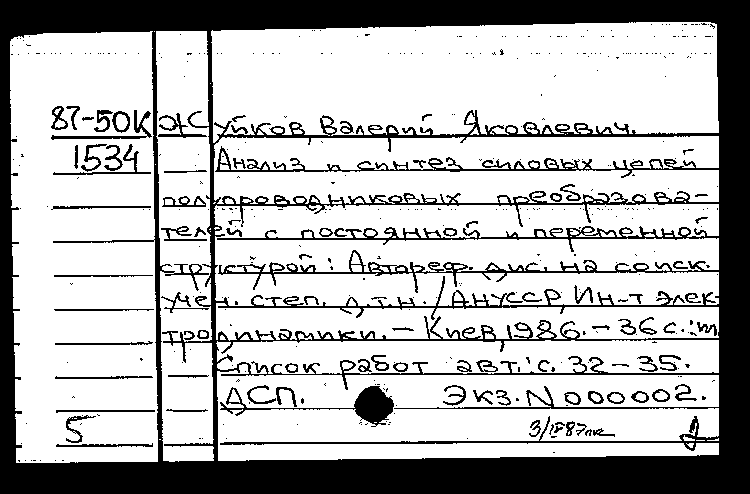 87-50К Жуйков, Валерий Яковлевич.
1534 Анализ и синтез силовых цепей
полупроводниковых преобразова-
телей с постоянной и переменной
структурой: Автореф. дис. на соиск.
учен. степ. д.т.н. / АНУССР, Ин-т элек-
тродинамики. – Киев, 1986. – 36 с.: ил.
Список работ авт.: с. 32–35.
ДСП. Экз. N 000002.
5 3/IV87